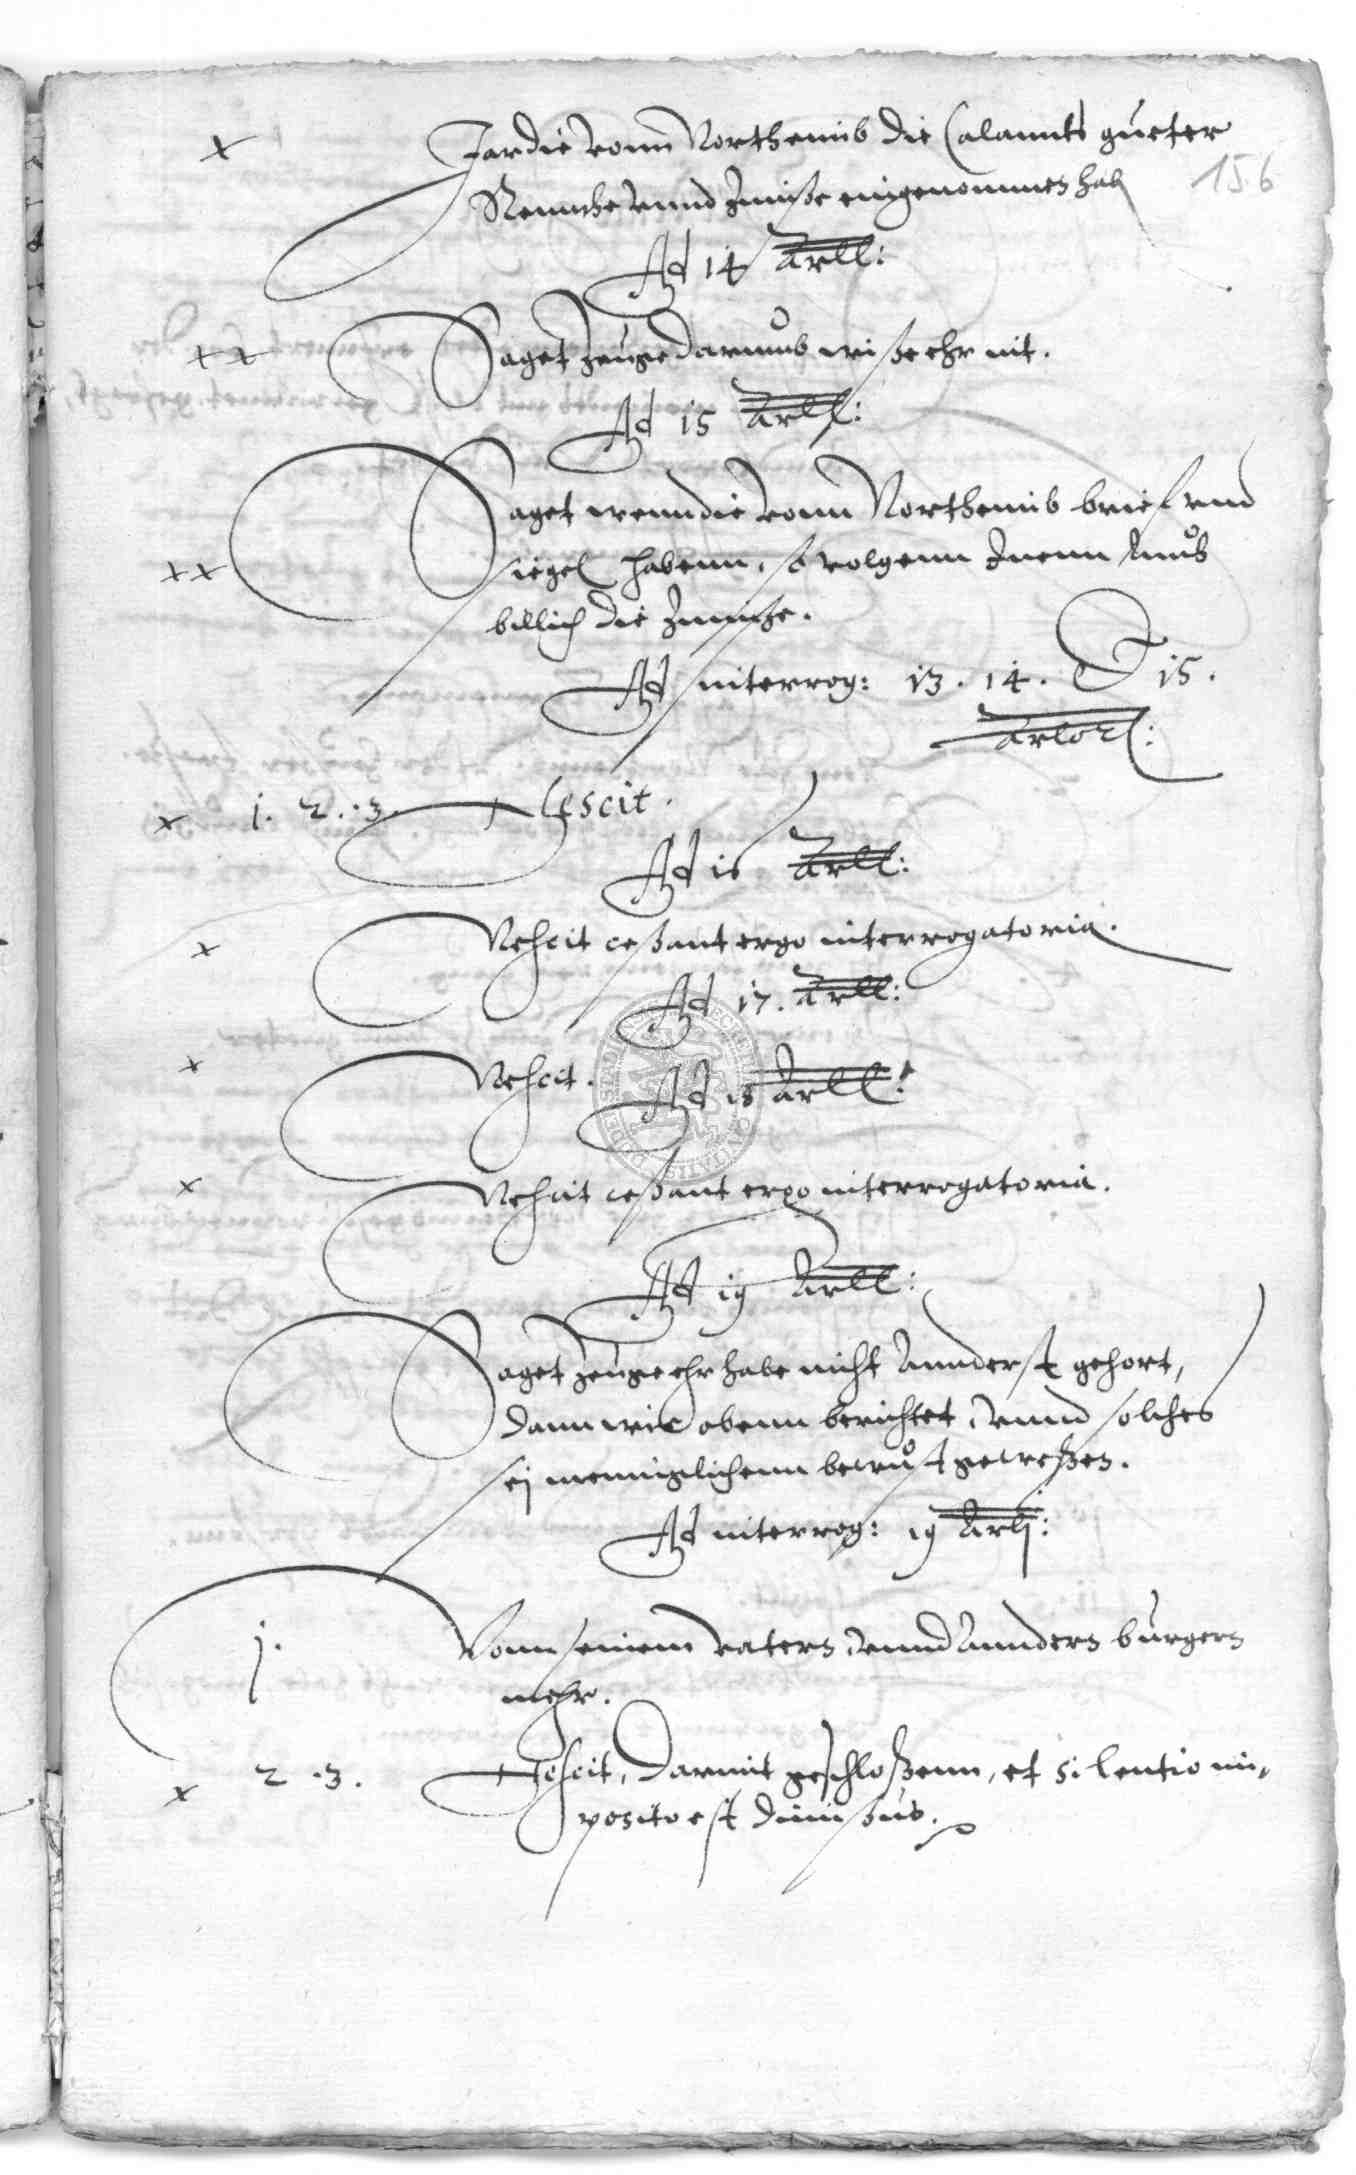 156
x Jar die vonn Northeimb die Calannts gueter
Rennthe vnnd Zinnße eingenommen hab
Ad 14 Artl:
xx Saget Zeuge darumb wiße ehr nit.
Ad 15 Artl:
Saget wenn die vonn Northeimb brief vnd
xx siegel habenn, so volgenn Inenn
billich die Zinnße.
Ad interrog: 13. 14. Et 15.
Artlorum:
x 1. 2. 3. Nescit.
Ad 16 Artl:
x Nescit ceßant ergo interrogatoria.
Ad 17. Artl:
x Nescit.
Ad 18 Artl:
x Nescit ceßant ergo interrogatoria.
Ad 19 Artl:
Saget Zeuge ehr habe nicht Annderst gehort,
dann wie obenn berichtet, vnnd solches
sej menniglichenn bewust geweßen.
Ad interrog: 19 Artlj:
1. Vonn seinem vatern, vnnd Anndern burgern
mehr.
x 2. 3. Nescit, darmit geschloßenn, et silentio im,
posito est dimißus.